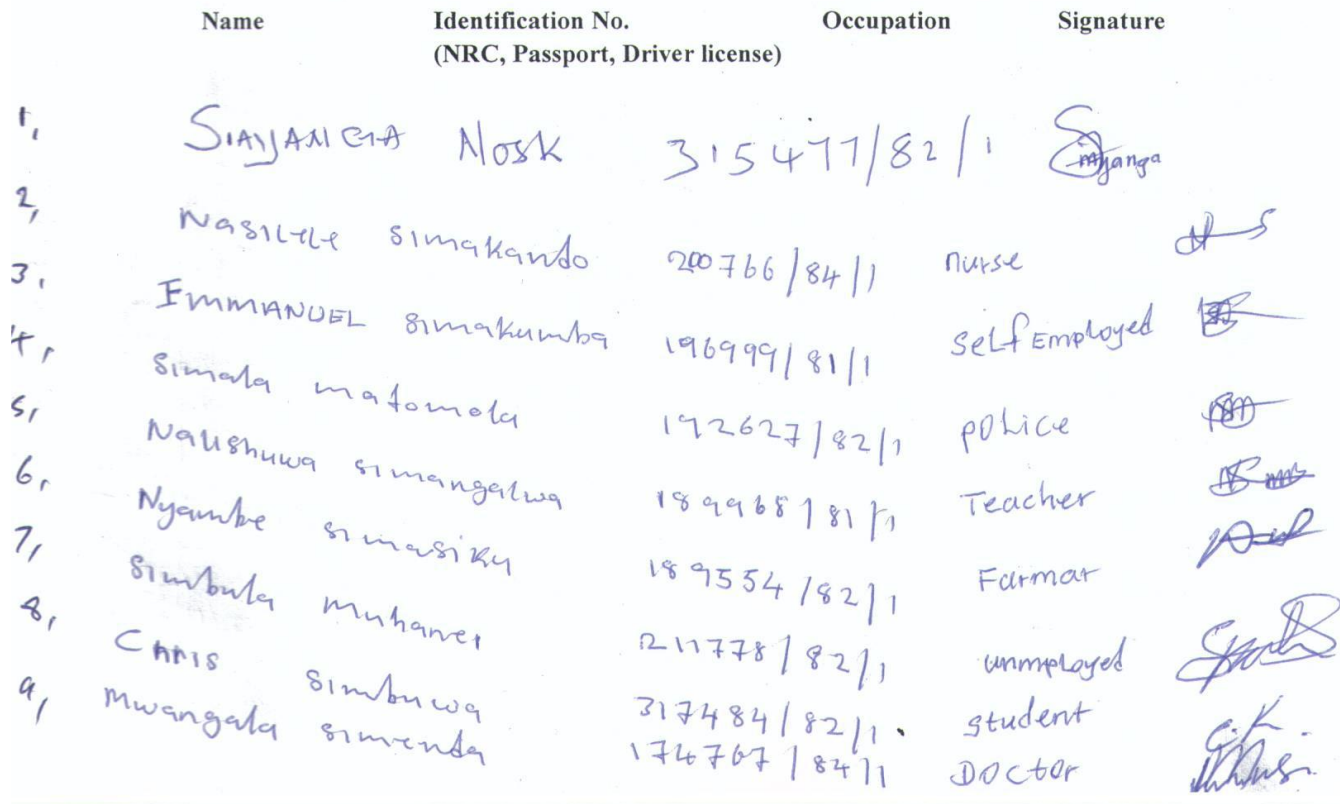 Name Identification No. Occupation Signature
(NRC, Passport, Driver license)
1, SIAYANGA NOSK 315477/82/1 Simyanga
2, Nasilele simakando 200766/84/1 nurse
3, EMMANUEL simakumba 196999/81/1 Self Employed
4, Simala matomola 192627/82/1 police
5, Naushuwa simangalwa 189968/81/1 Teacher
6, Nyambe simasiku 189554/82/1 Farmar
7, simbula muhanei 211778/82/1 unmployed
8, Chris simbuwa 317484/82/1. student C.K
9, Mwangala simenda 174767/84/1 Doctor